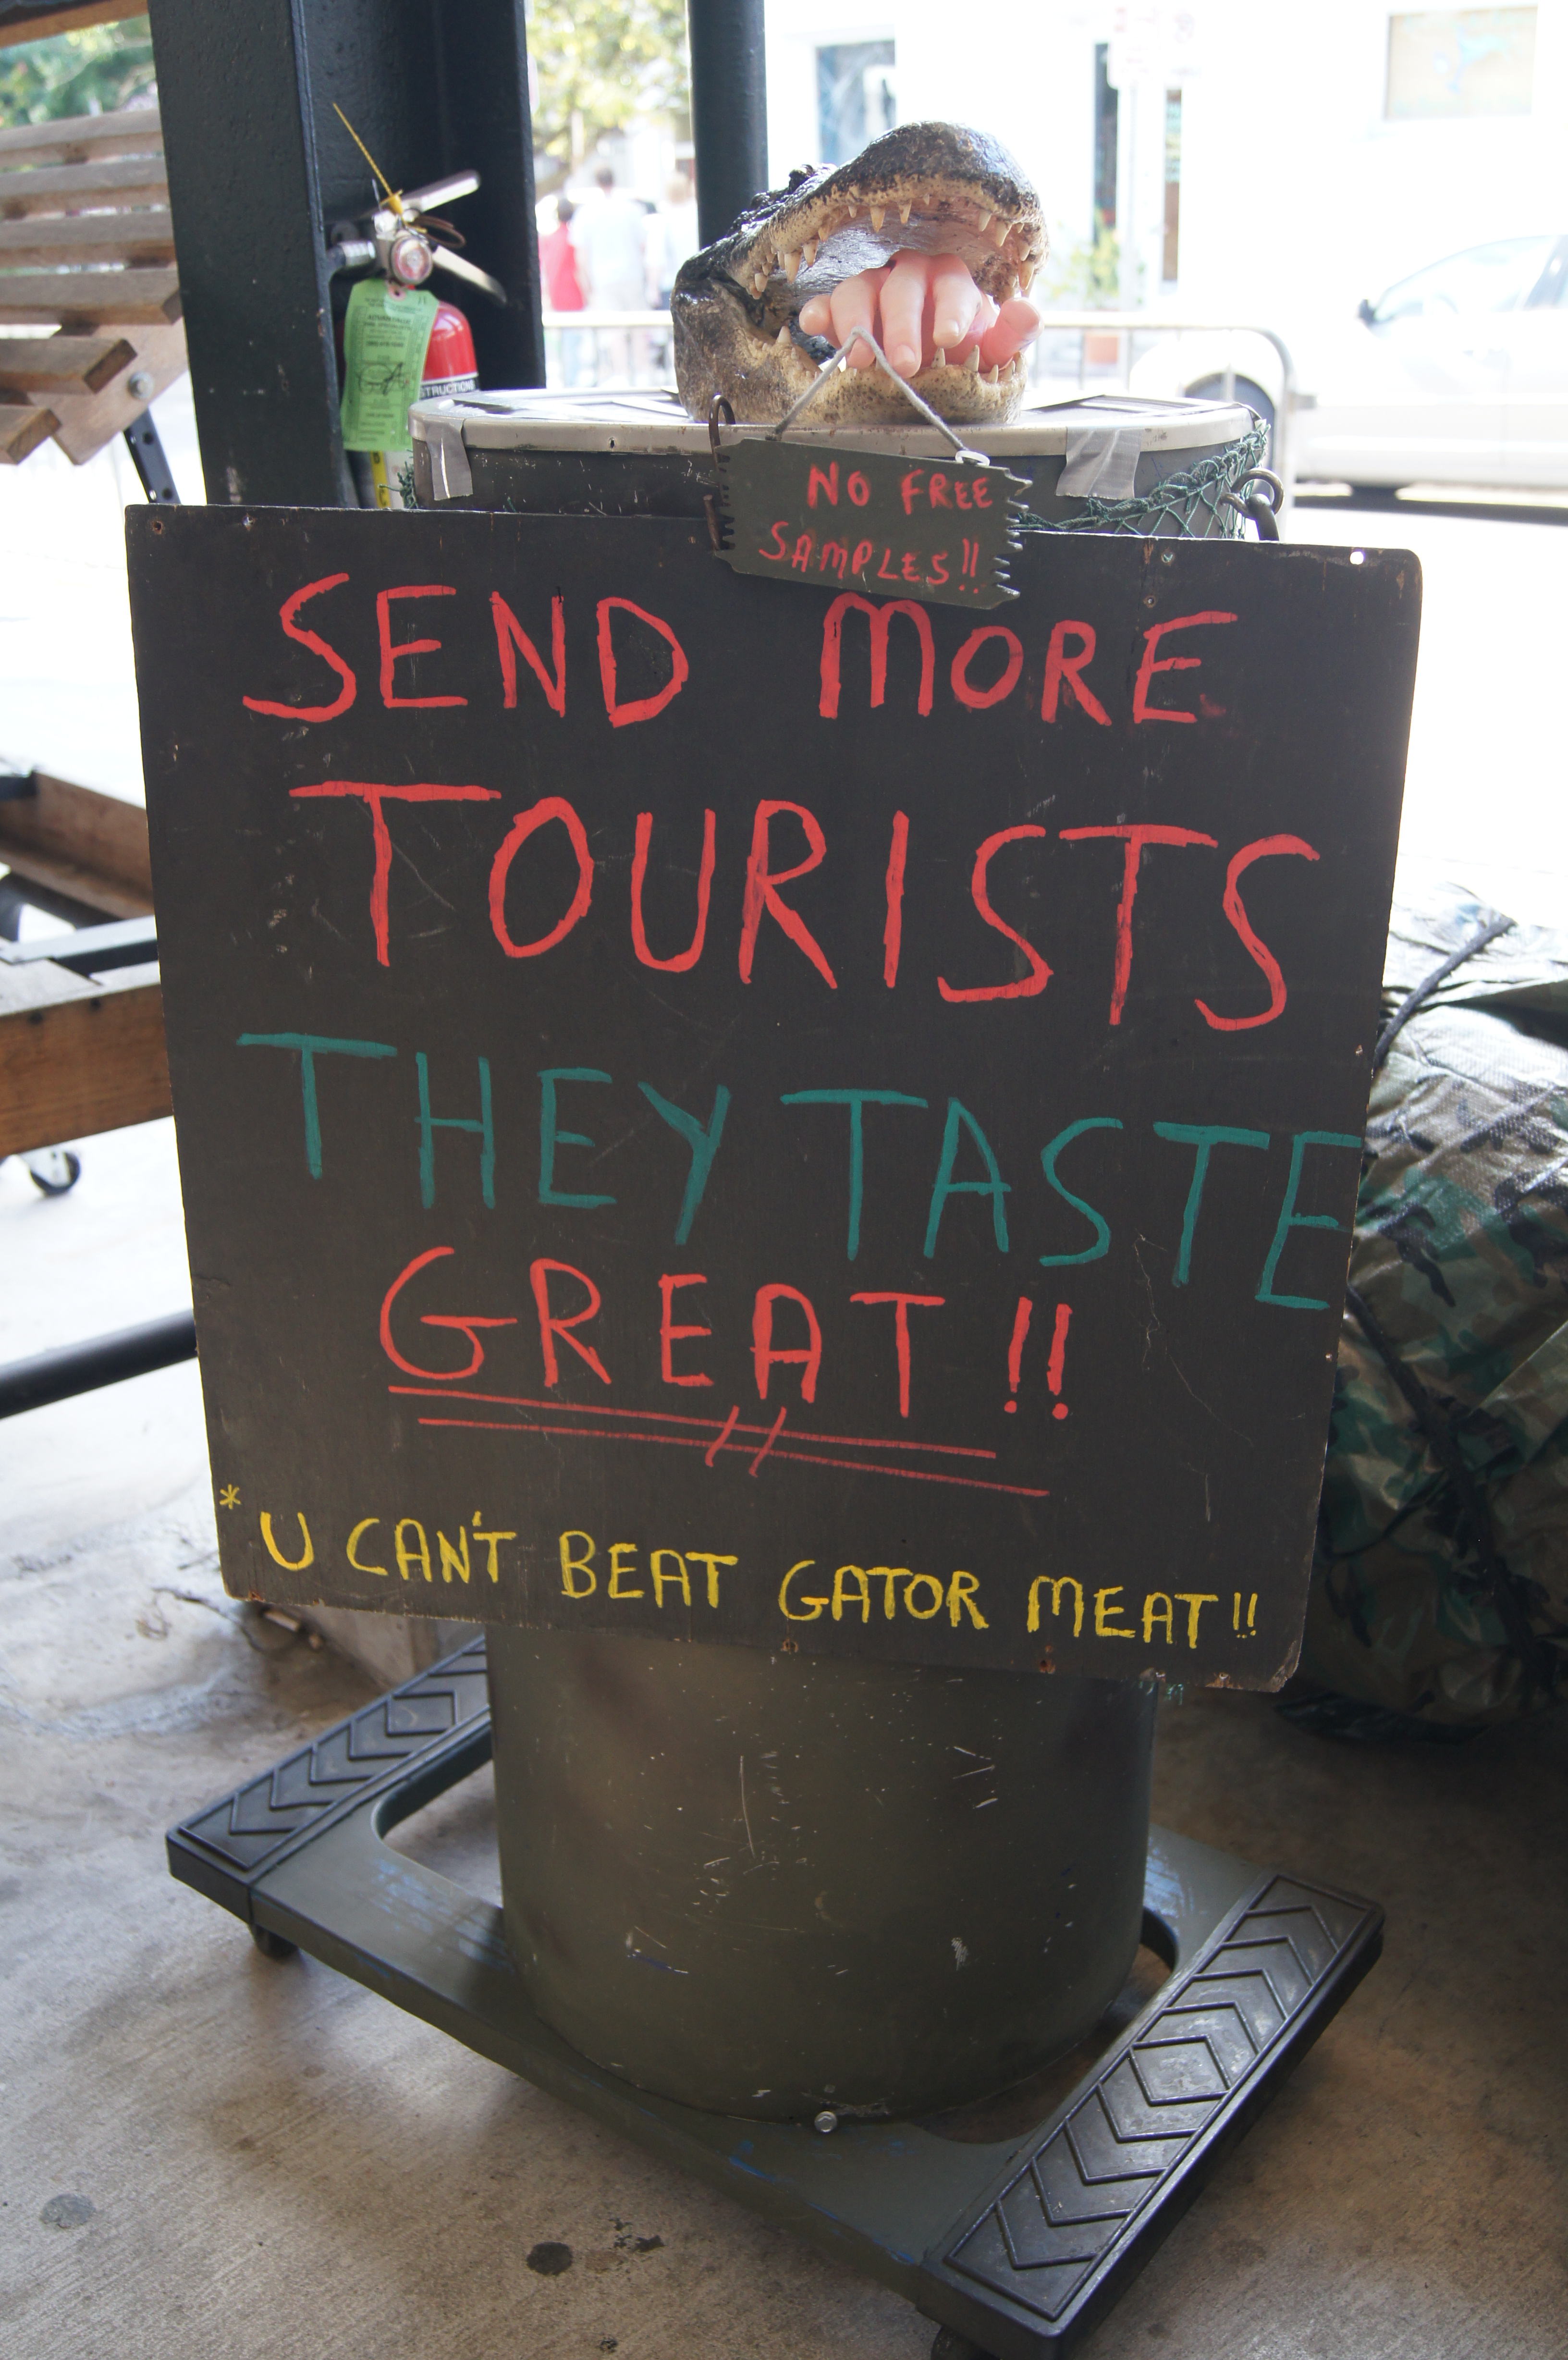 NO FREE
SAMPLES!!
SEND MORE
TOURISTS
THEY TASTE
GREAT!!
* U CAN'T BEAT GATOR MEAT!!
STRUCTIONS